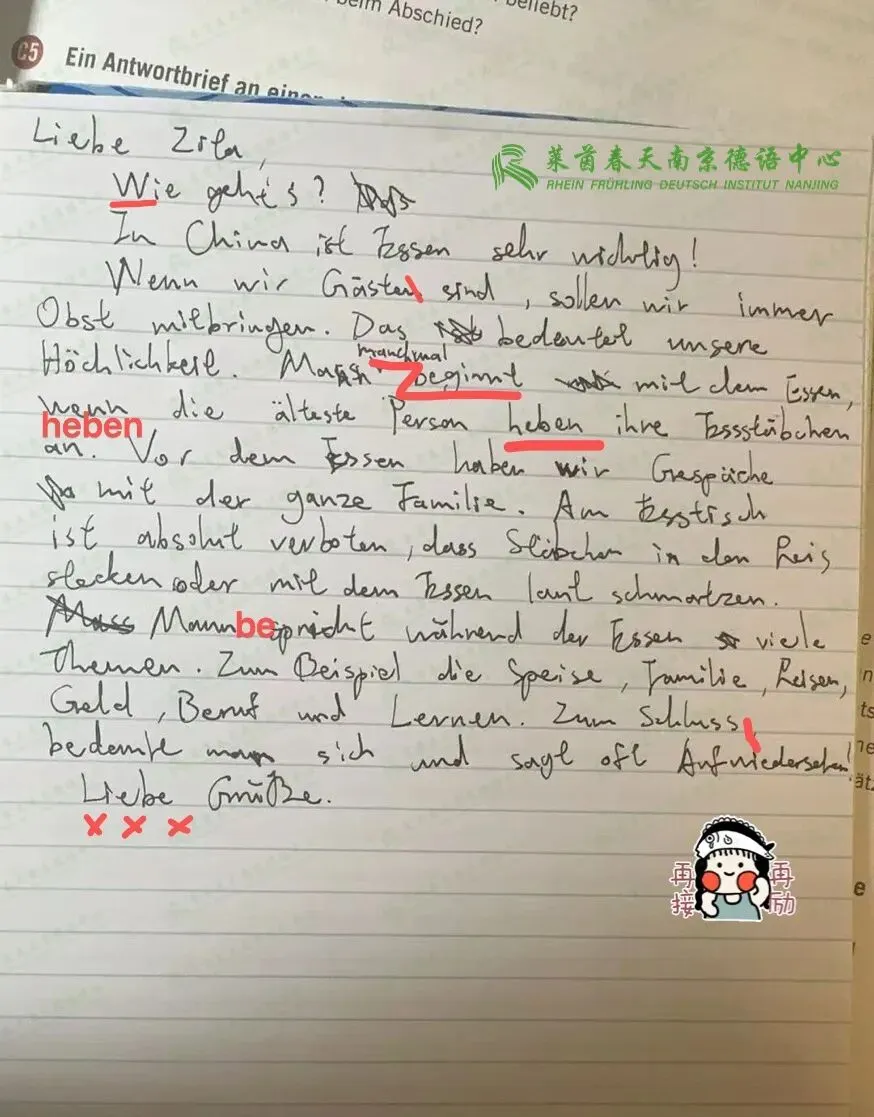 beim Abschied?
beliebt?
C5 Ein Antwortbrief an einen
莱茵春天南京德语中心
RHEIN FRÜHLING DEUTSCH INSTITUT NANJING
Liebe Zita,
Wie geht's?
In China ist Essen sehr wichtig!
Wenn wir Gästen sind, sollen wir immer
Obst mitbringen. Das bedeutet unsere
Höchlichkeit. Man manchmal beginnt mit dem Essen,
wenn die älteste Person heben ihre Essstäbchen
heben
an. Vor dem Essen haben wir Gespäche
mit der ganze Familie. Am Esstisch
ist absolut verboten, dass Stäbchen in den Reis
stecken oder mit dem Essen laut schmartzen.
Mann bespricht während der Essen viele
Themen. Zum Beispiel die Speise, Familie, Reisen,
Geld, Beruf und Lernen. Zum Schluss
bedankt man sich und sagt oft Aufwiedersehen!
Liebe Grüße.
x x x
再接再励